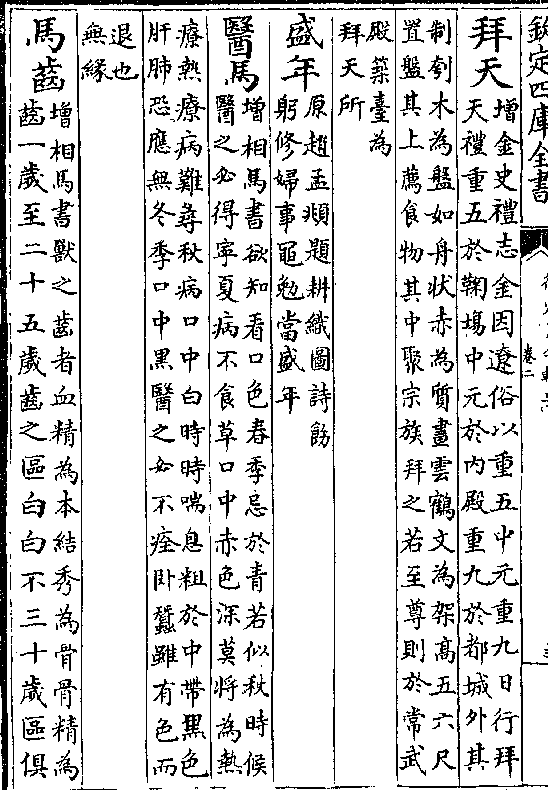 欽定四庫全書
卷二
拜天
增金史禮志金因遼俗以重五中元重九日行拜
天禮重五於鞠塲中元於内殿重九於都城外其
制刳木為盤如舟狀赤為質畫雲鶴文為架高五六尺
置盤其上薦食物其中聚宗族拜之若至尊則於常武
殿築臺為
拜天所
盛年
原趙孟頫題耕織圖詩飭
躬修婦事黽勉當盛年
醫馬
增相馬書欲知看口色春季忌於青若似秋時候
醫之必得寧夏病不食草口中赤色深莫將為熱
療熱療病難尋秋病口中白時時喘息粗於中帶黑色
肝肺恐應無冬季口中黑醫之必不痊卧蠶雖有色而
退也
無緣
馬齒
增相馬書獸之齒者血精為本結秀為骨骨精為
齒一歲至二十五歲齒之區白白不三十歲區俱